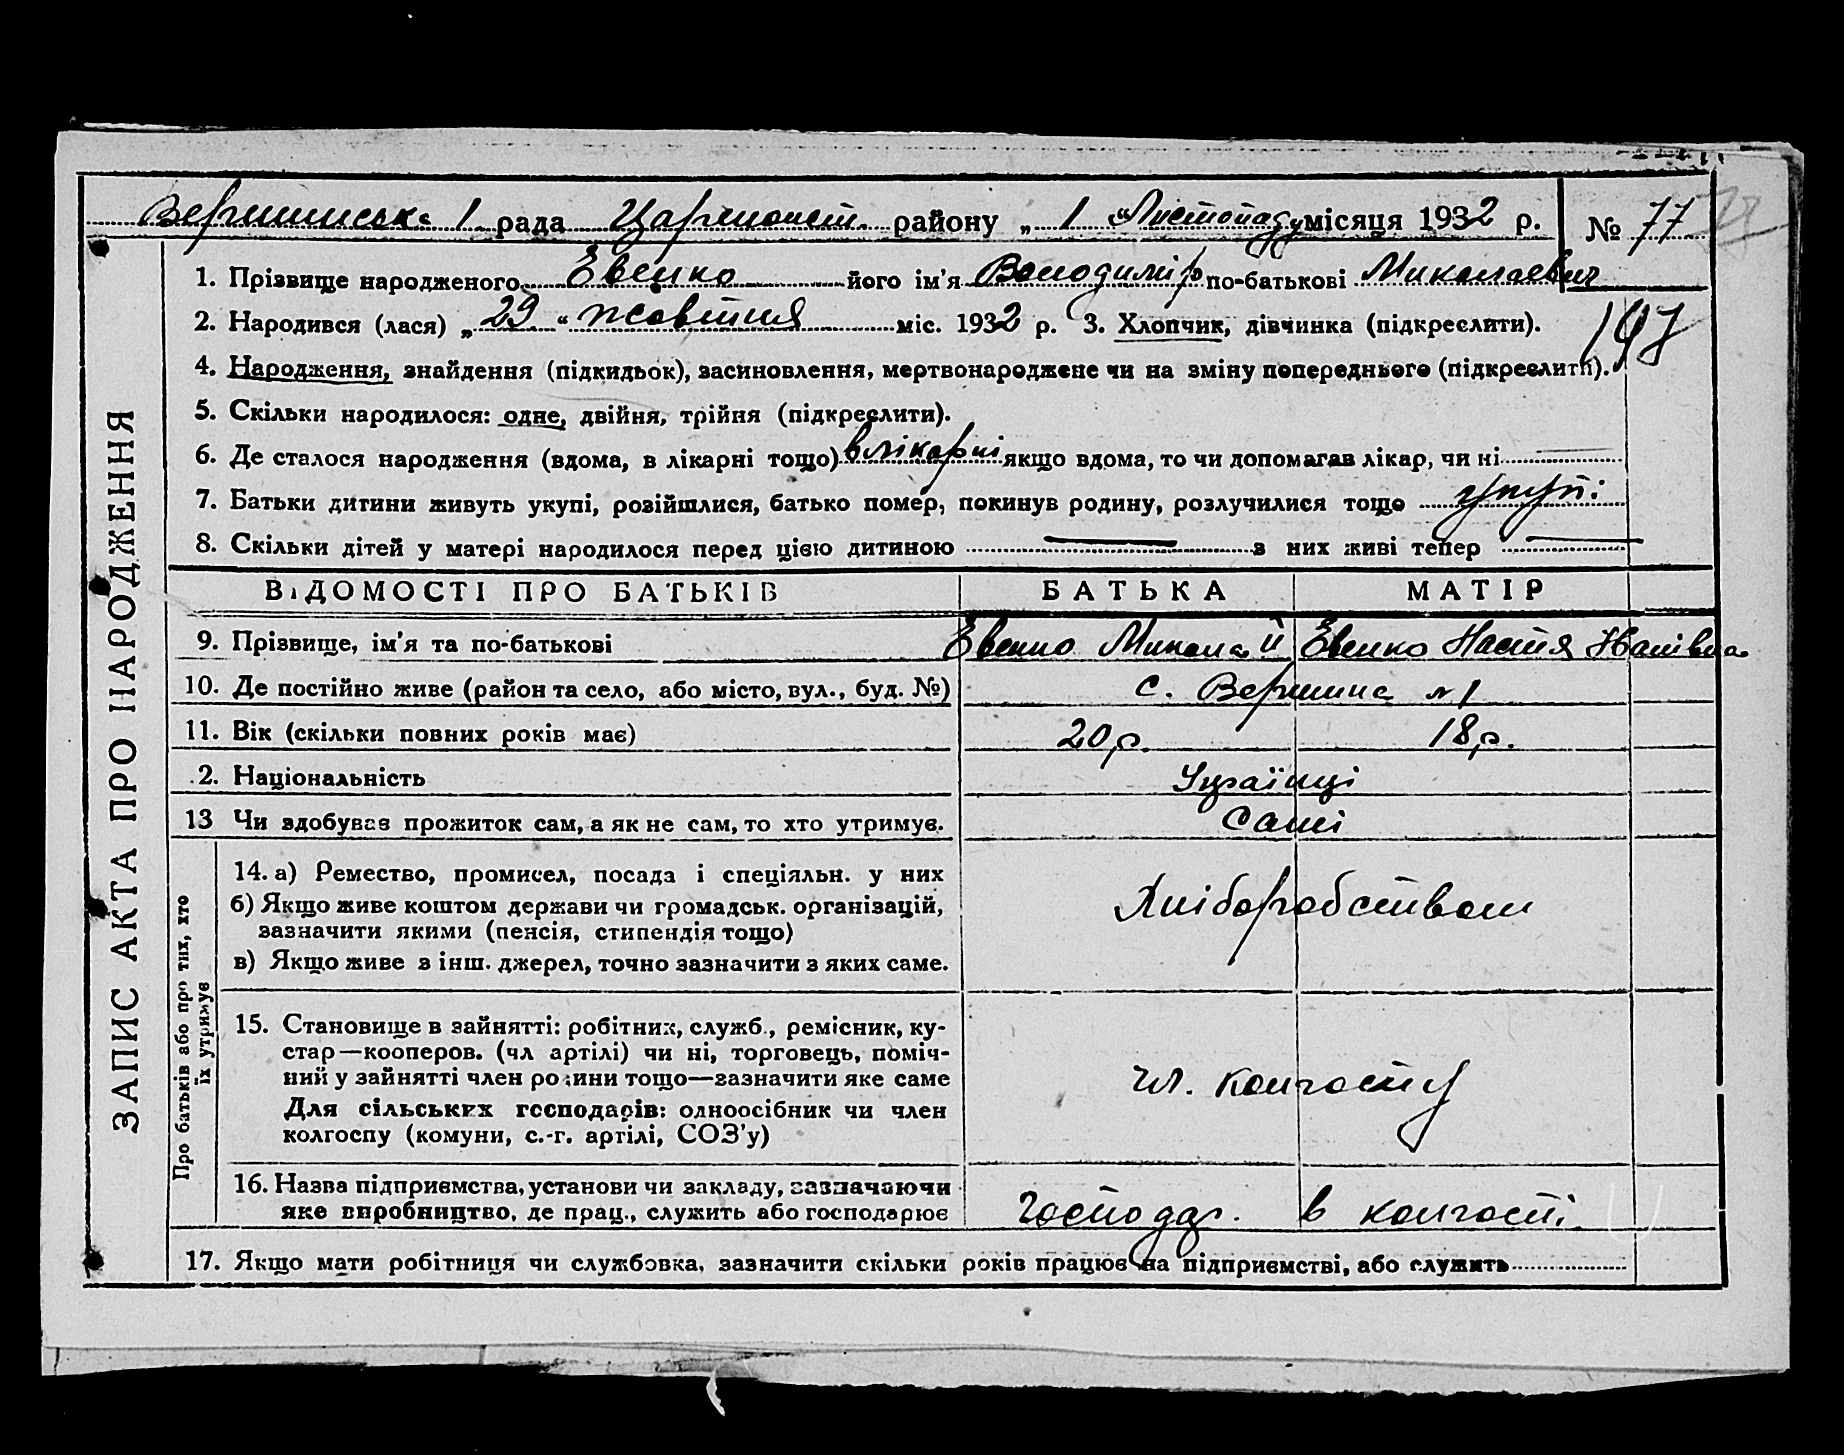 Вершинська 1 рада Царичанськ. району „ 1 “ Листопаду місяця 1932 р. № 77
1. Прізвище народженого Евенко його ім'я Володимір по-батькові Миколаевич
2. Народився (лася) „ 29 “ жовтня міс. 1932 р. 3. Хлопчик, дівчинка (підкреслити).
197
4. Народження, знайдення (підкидьок), засиновлення, мертвонароджене чи на зміну попереднього (підкреслити).
5. Скільки народилося: одне, двійня, трійня (підкреслити).
6. Де сталося народження (вдома, в лікарні тощо) в лікарні якщо вдома, то чи допомагав лікар, чи ні —
7. Батьки дитини живуть укупі, розійшлися, батько помер, покинув родину, розлучилися тощо укупі
8. Скільки дітей у матері народилося перед цією дитиною — з них живі тепер —
ЗАПИС АКТА ПРО НАРОДЖЕННЯ
ВІДОМОСТІ ПРО БАТЬКІВ БАТЬКА МАТІР
9. Прізвище, ім'я та по-батькові Евенко Миколай Евенко Настя Іванівна
10. Де постійно живе (район та село, або місто, вул., буд. №) с. Вершина №1
11. Вік (скільки повних років має) 20 р. 18 р.
.2. Національність Українці
13 Чи здобував прожиток сам, а як не сам, то хто утримує. Самі
Про батьків або про тих, хто
їх утримує
14. а) Ремество, промисел, посада і спеціяльн. у них
б) Якщо живе коштом держави чи громадськ. організацій,
зазначити якими (пенсія, стипендія тощо)
в) Якщо живе з інш. джерел, точно зазначити з яких саме.
Хліборобством
15. Становище в зайнятті: робітник, служб., ремісник, ку-
стар—кооперов. (чл артілі) чи ні, торговець, поміч-
ний у зайнятті член родини тощо—зазначити яке саме
Для сільських господарів: одноосібник чи член
колгоспу (комуни, с.-г. артілі, СОЗ'у)
чл. колгоспу
16. Назва підприємства, установи чи закладу, зазначаючи
яке виробництво, де прац., служить або господарює господар. в колгоспі
17. Якщо мати робітниця чи службовка, зазначити скільки років працює на підприємстві, або служить